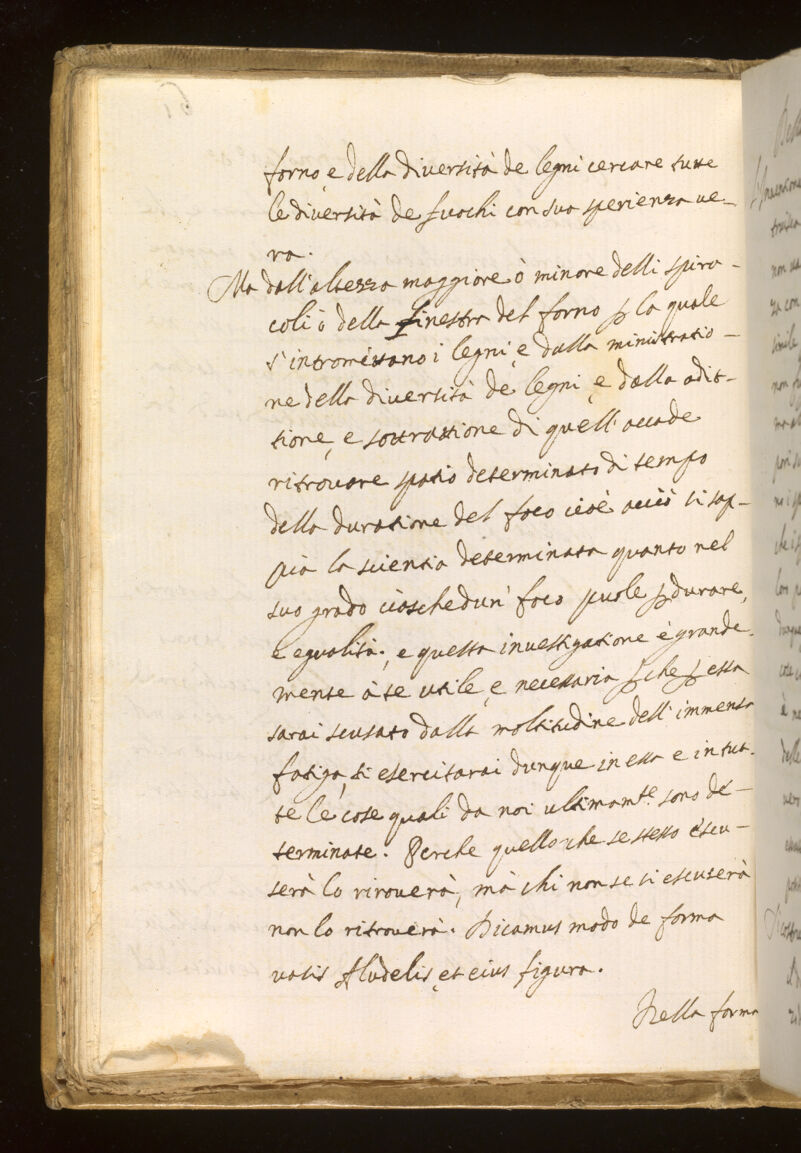 forno, e della diversità de legni cercare tutte
le diversità de fuochi con sua sperienza ve-
ra.
Ma dall'altezza maggiore ò minore delli spira-
coli ò della finestra del forno p la quale
s'intromettano i legni, e dalla ministratio-
ne della diversità de legni, e dalla adit-
tione, e sottrattione di quell'accade
ritrovare spatio determinato di tempo
della duratione del foco cioè acciò si sap-
pia la scientia determinata quanto nel
suo grado ciaschedun' foco puole pdurare,
e egualità; e questa investigatione è grande
mente à te utile, e necessaria pche p essa
sarai scusato dalla moltitudine dell'immensa
fatiga, ti esercitarai dunque in essa e in tut-
te le cose quali da noi ultimamte sono de-
terminate. Perche quello che se stesso escu-
serà lo riroverà, mà chi non se ti escuserà
non lo ritroverà. Dicamus modo de forma
vasis Aludelis, et eius figura.
Nella forma